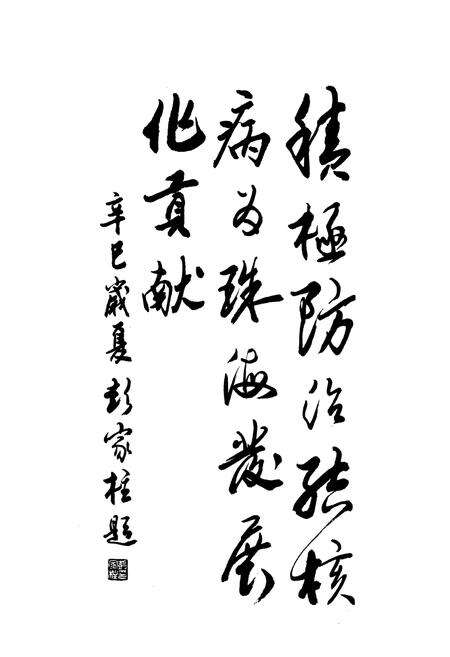 積極防治結核
病为珠海發展
作貢献
辛巳歲夏彭家柱題